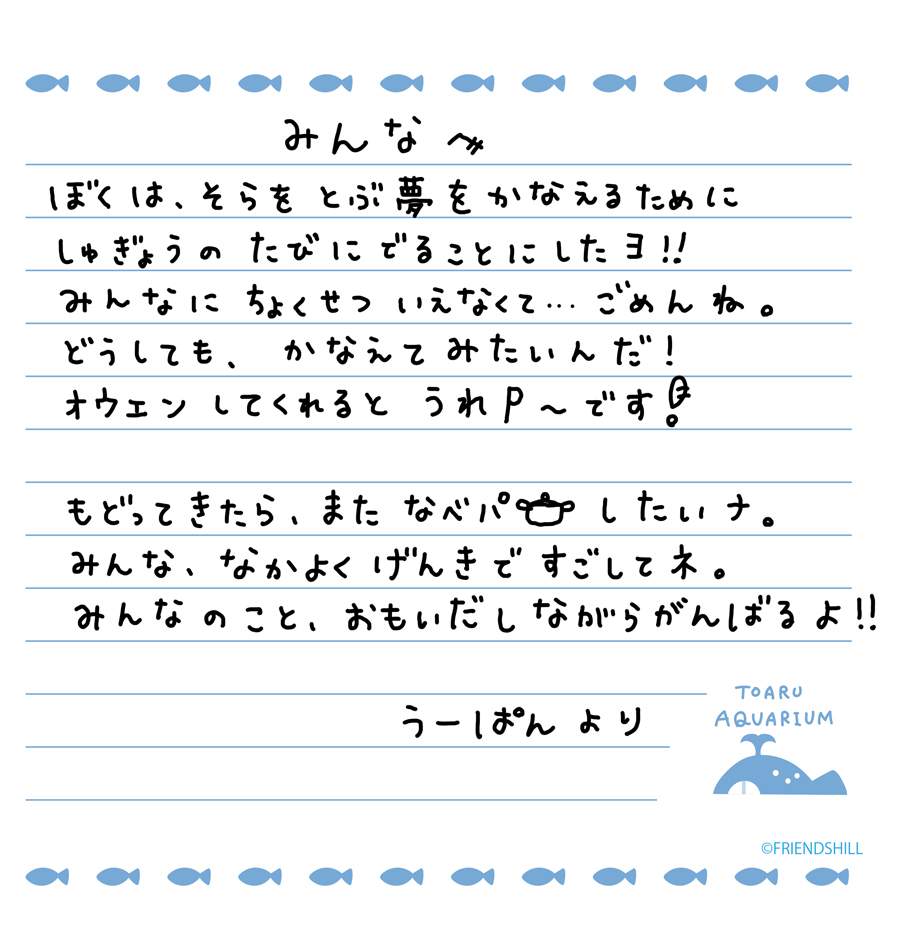 みんなへ
ぼくは、そらをとぶ夢をかなえるために
しゅぎょうの たびにでることにしたヨ!!
みんなに ちょくせつ いえなくて… ごめんね。
どうしても、 かなえてみたいんだ!
オウェンしてくれると うれP〜です!
もどってきたら、また なべパ したいナ。
みんな、なかよく げんきで すごしてネ。
みんなのこと、おもいだしながらがんばるよ!!
うーぱんより
TOARU
AQUARIUM
©FRIENDSHILL